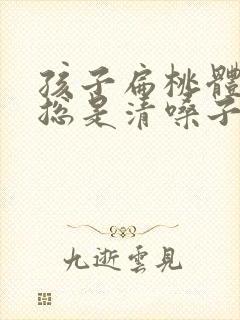 孩子扁桃體
總是清嗓子
九逝雲見